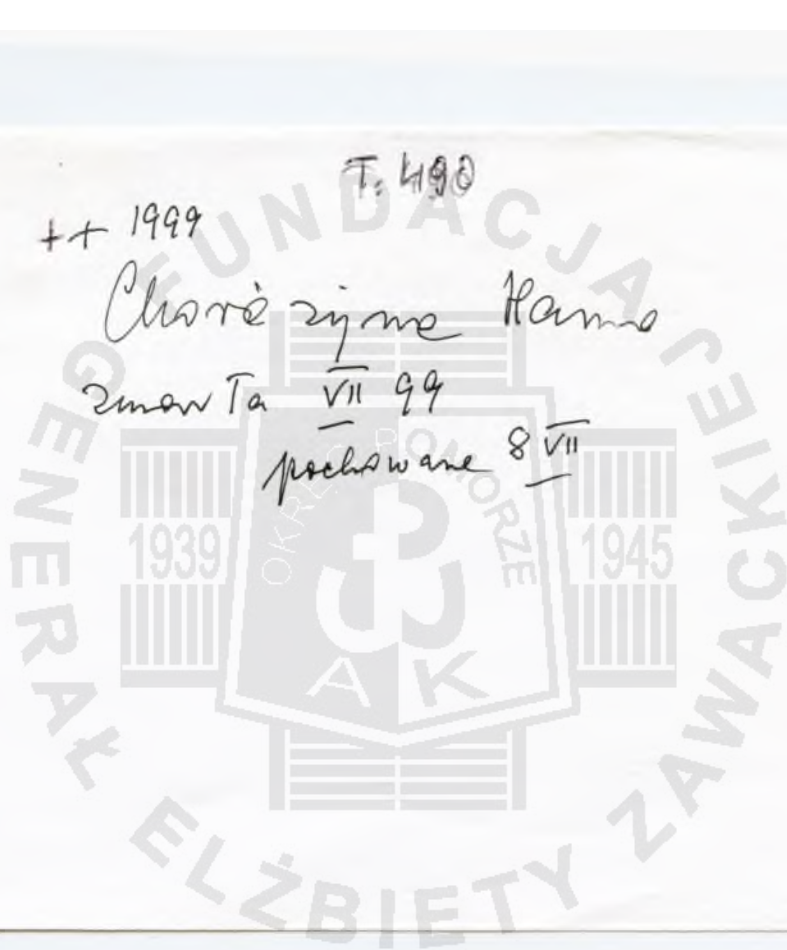 T: 490
++ 1999
Chorążyna Hanna
zmarła VII 99
pochowana 8 VII
FUNDACJA GENERAŁ ELŻBIETY ZAWACKIEJ
OKRĘG POMORZE
1939 1945
AK